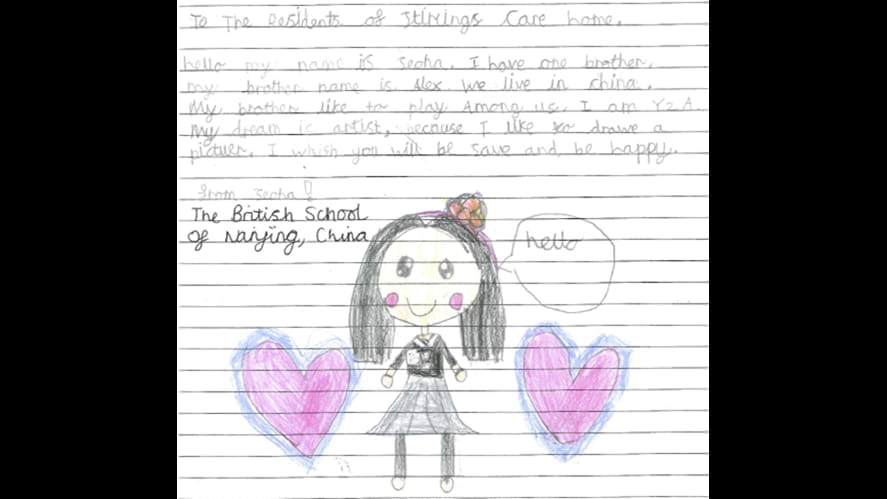 To The Residents of Stirlings Care home.
hello my name is Seoha. I have one brother.
my brother name is Alex we live in china.
My brother like to play Among us. I am Y2A.
My dream is artist, because I like to drawe a
pictuer. I whish you will be save and be happy.
from seoha!
The British School
of Nanjing, China
hello